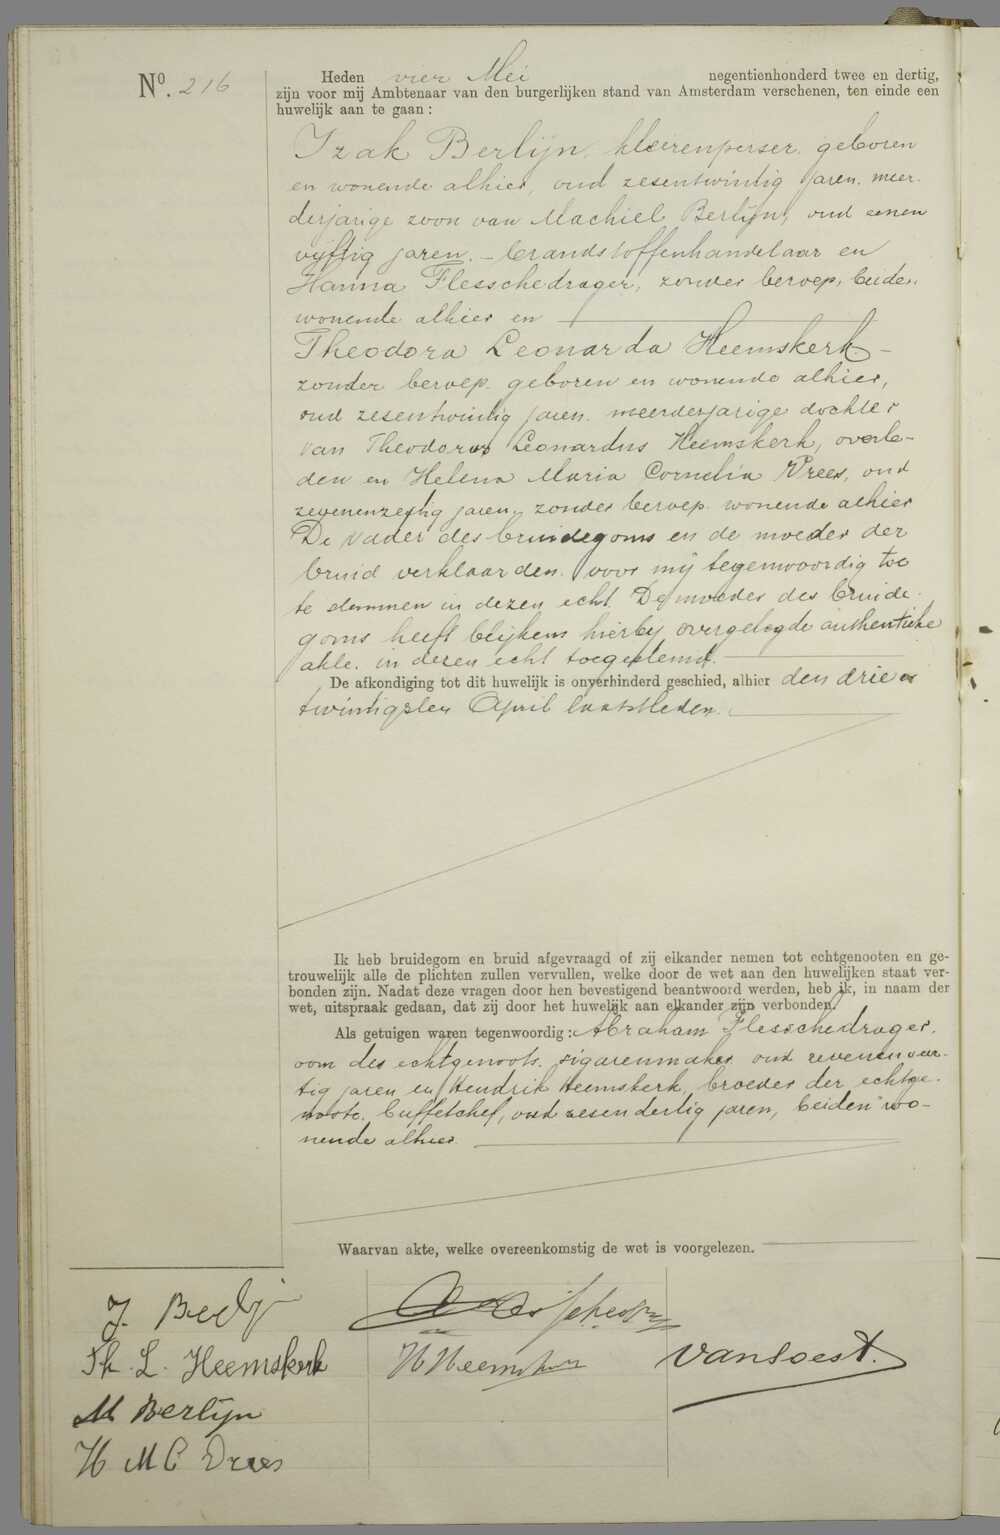 No. 216
Heden vier Mei negentienhonderd twee en dertig,
zijn voor mij Ambtenaar van den burgerlijken stand van Amsterdam verschenen, ten einde een
huwelijk aan te gaan:
Izak Berlijn, kleerenperser, geboren
en wonende alhier, oud zesentwintig jaren, meer-
derjarige zoon van Machiel Berlijn, oud eenen
vijftig jaren, brandstoffenhandelaar en
Hanna Flesschedrager, zonder beroep, beiden
wonende alhier en
Theodora Leonarda Heemskerk
zonder beroep, geboren en wonende alhier,
oud zesentwintig jaren, meerderjarige dochter
van Theodorus Leonardus Heemskerk, overle-
den en Helena Maria Cornelia Drees, oud
zevenenzestig jaren, zonder beroep, wonende alhier
De vader des bruidegoms en de moeder der
bruid verklaarden voor mij tegenwoordig toe
te stemmen in dezen echt. De moeder des bruide-
goms heeft blijkens hierbij overgelegde authentieke
akte in dezen echt toegestemd.
De afkondiging tot dit huwelijk is onverhinderd geschied, alhier den drie en
twintigsten April laatstleden.
Ik heb bruidegom en bruid afgevraagd of zij elkander nemen tot echtgenooten en ge-
trouwelijk alle de plichten zullen vervullen, welke door de wet aan den huwelijken staat ver-
bonden zijn. Nadat deze vragen door hen bevestigend beantwoord werden, heb ik, in naam der
wet, uitspraak gedaan, dat zij door het huwelijk aan elkander zijn verbonden.
Als getuigen waren tegenwoordig: Abraham Flesschedrager,
oom des echtgenoots, sigarenmaker, oud zevenenveer-
tig jaren en Hendrik Heemskerk, broeder der echtge-
noote, buffetchef, oud zesendertig jaren, beiden wo-
nende alhier.
Waarvan akte, welke overeenkomstig de wet is voorgelezen.
J. Berlijn
Th. L. Heemskerk
H Heemskerk
van Soest.
M Berlijn
H M C Drees